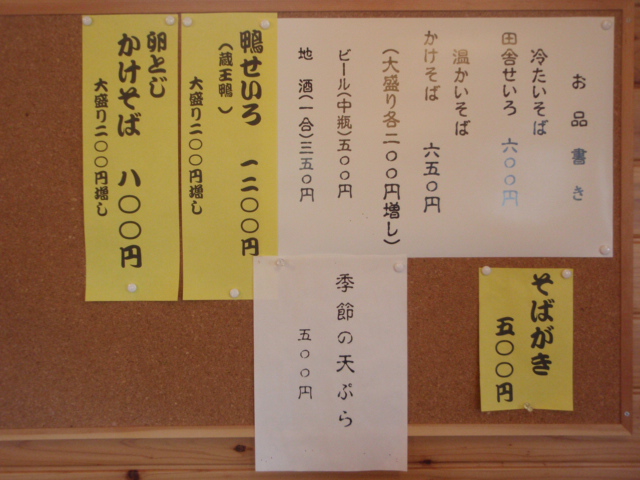 お品書き
冷たいそば
田舎せいろ 六〇〇円
温かいそば
かけそば 六五〇円
(大盛り各二〇〇円増し)
ビール(中瓶)五〇〇円
地 酒(一合)三五〇円
鴨せいろ 一二〇〇円
(蔵王鴨)
大盛り二〇〇円増し
卵とじ
かけそば 八〇〇円
大盛り二〇〇円増し
そばがき
五〇〇円
季節の天ぷら
五〇〇円